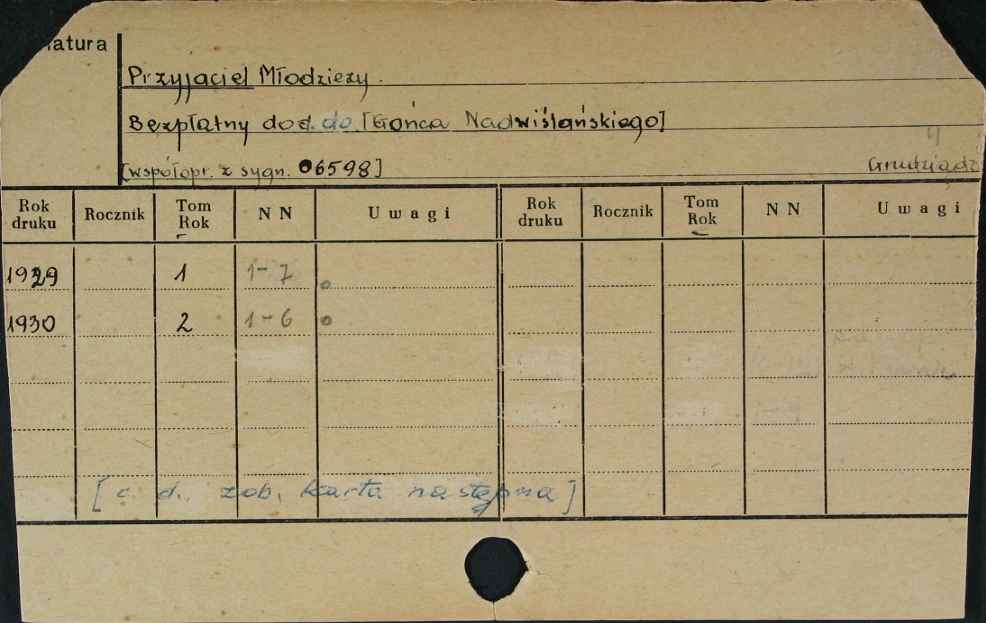 Przyjaciel Młodzieży.
Bezpłatny dod. do [Gońca Nadwiślańskiego]
[współopr. z sygn. 06598]
Rok druku Rocznik Tom Rok NN Uwagi Rok druku Rocznik Tom Rok NN Uwagi
1929 1 1-7
1930 2 1-6
[c. d. zob. karta następna]